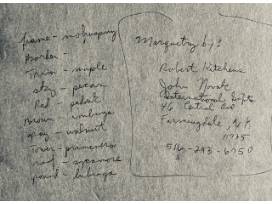 frame - mahogany
Border -
Train - maple
sky - pecan
Red - padauk
Brown - imbuya
gray - walnut
Tower - primavera
roof - sycamore
Marquetry by:
Robert Kitchens
John Novak
International Gifts
46 Central Ave
Farmingdale, N.Y.
11735
516-293-6750